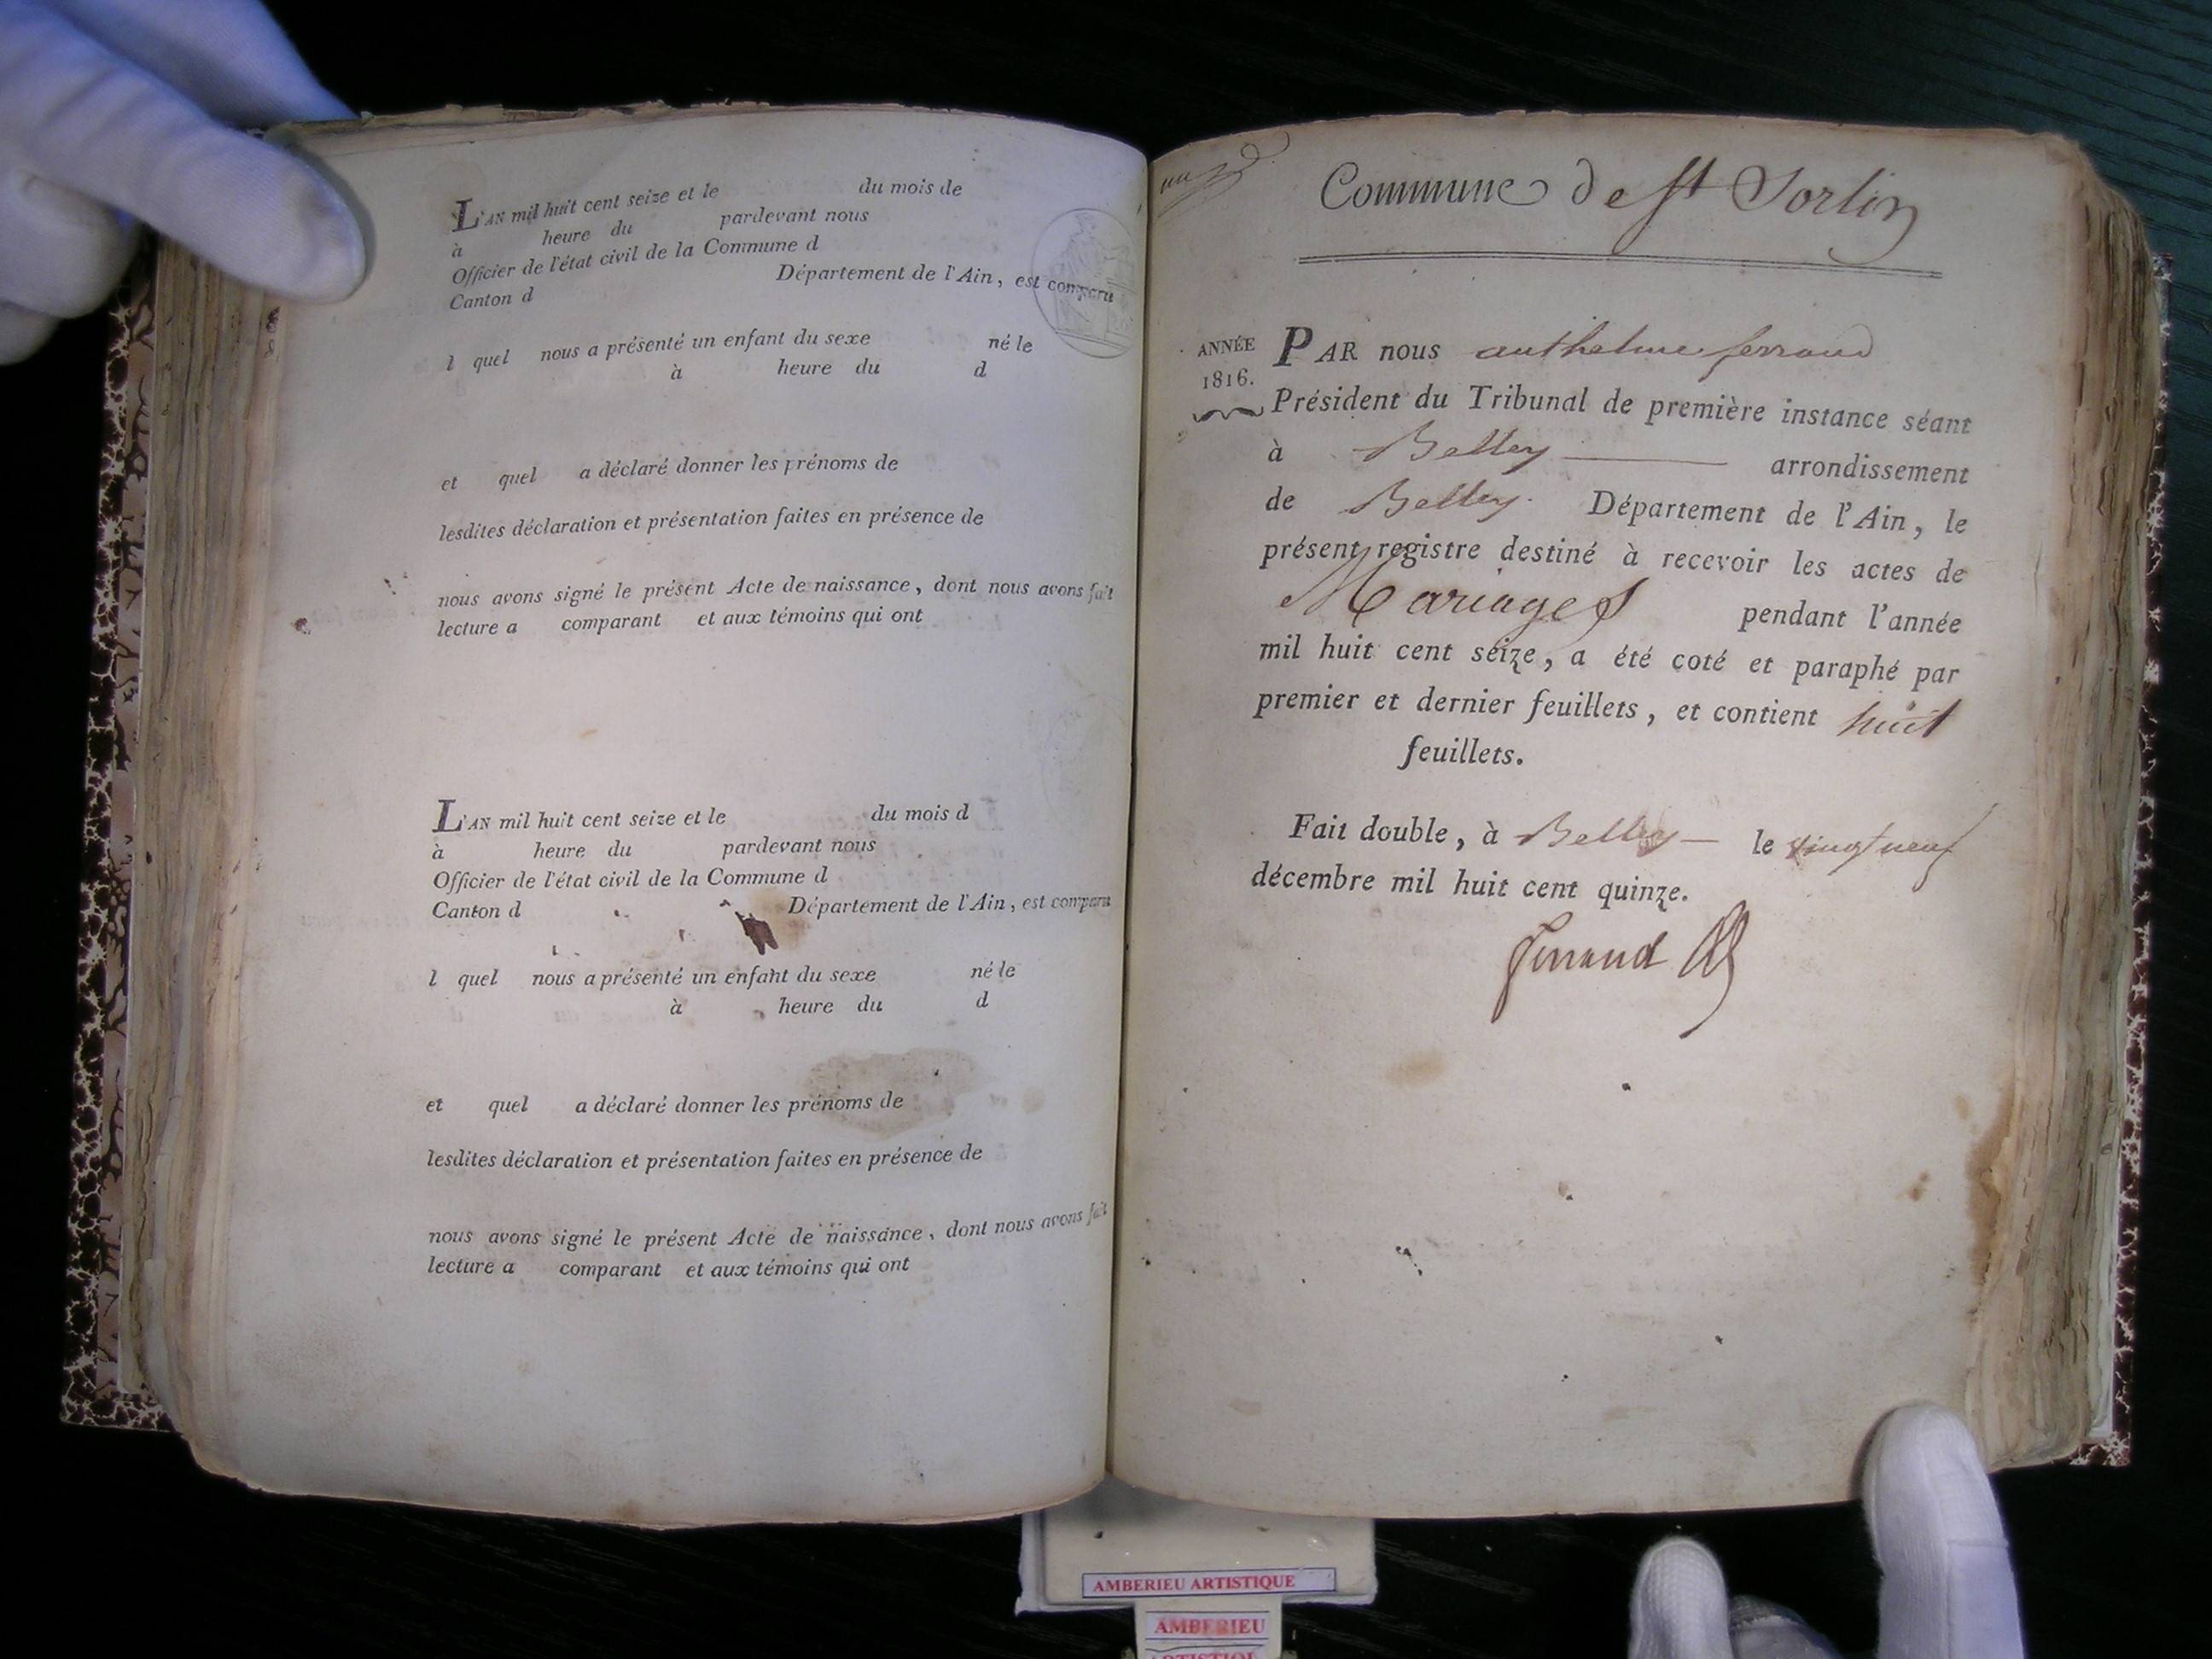 L'AN mil huit cent seize et le du mois de
à heure du pardevant nous
Officier de l'état civil de la Commune d
Canton d Département de l'Ain, est comparu
l quel nous a présenté un enfant du sexe né le
à heure du d
et quel a déclaré donner les prénoms de
lesdites déclaration et présentation faites en présence de
nous avons signé le présent Acte de naissance, dont nous avons fait
lecture a comparant et aux témoins qui ont
L'AN mil huit cent seize et le du mois d
à heure du pardevant nous
Officier de l'état civil de la Commune d
Canton d Département de l'Ain, est comparu
l quel nous a présenté un enfant du sexe né le
à heure du d
et quel a déclaré donner les prénoms de
lesdites déclaration et présentation faites en présence de
nous avons signé le présent Acte de naissance, dont nous avons fait
lecture a comparant et aux témoins qui ont
Commune de St Sorlin
ANNÉE
1816.
PAR nous anthelme ferrand
Président du Tribunal de première instance séant
à Belley arrondissement
de Belley. Département de l'Ain, le
présent registre destiné à recevoir les actes de
Mariages pendant l'année
mil huit cent seize, a été coté et paraphé par
premier et dernier feuillets, et contient huit
feuillets.
Fait double, à Belley — le vingt neuf
décembre mil huit cent quinze.
ferrand
AMBERIEU ARTISTIQUE
AMBERIEU
ARTISTIQUE